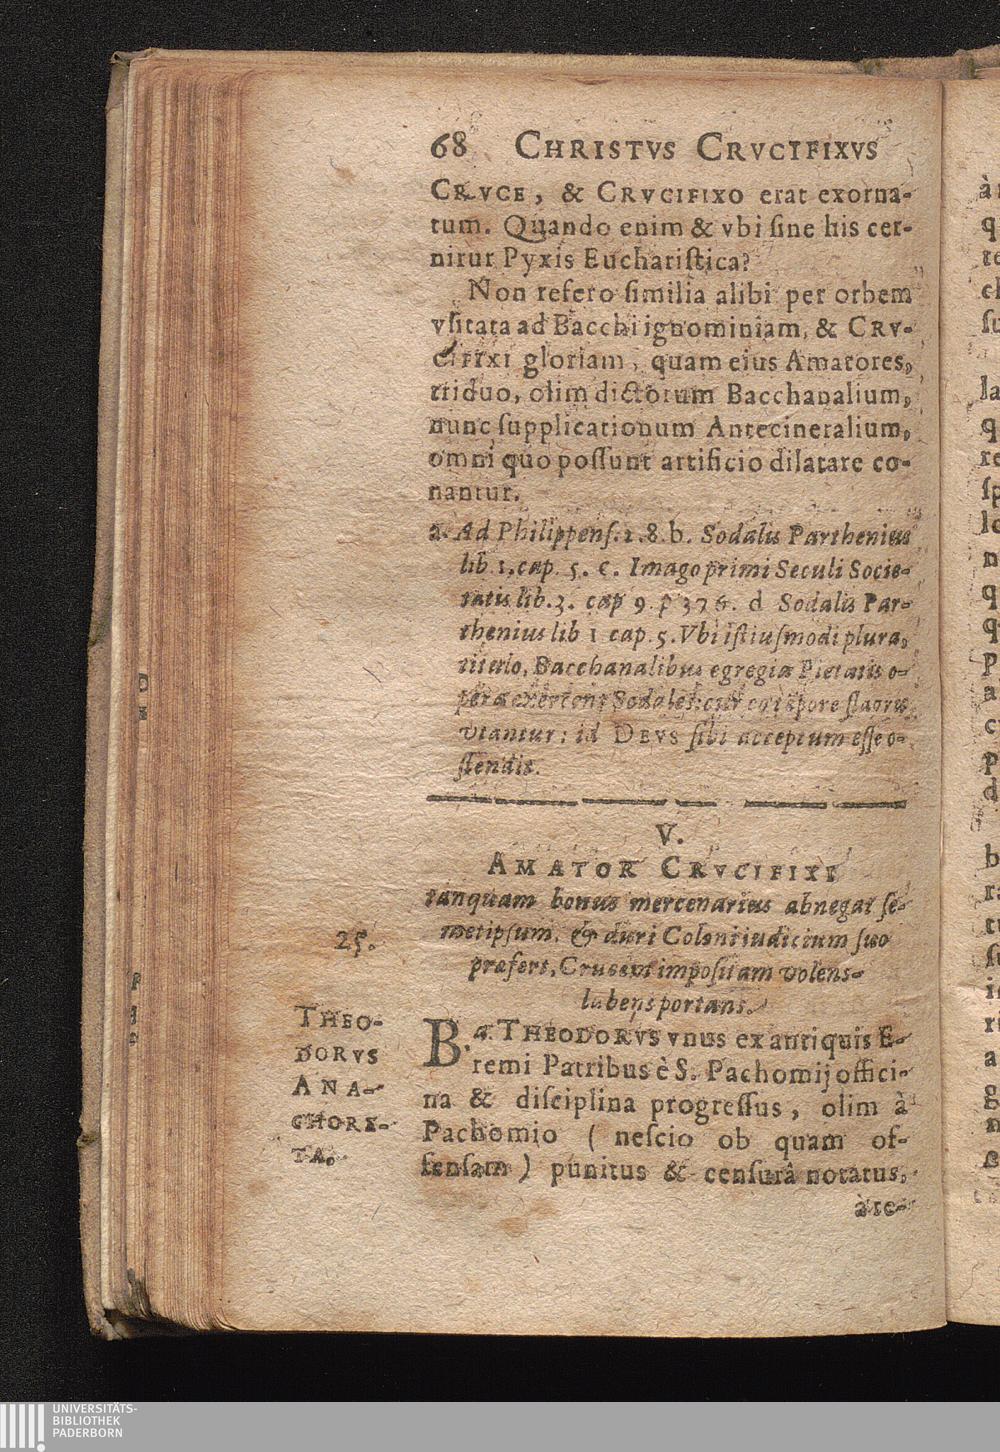 68 CHRISTVS CRVCIFIXVS
CRVCE, & CRVCIFIXO erat exorna-
tum. Quando enim & vbi sine his cer-
nitur Pyxis Eucharistica?
Non refero similia alibi per orbem
vsitata ad Bacchi ignominiam, & CRV-
CIFIXI gloriam, quam eius Amatores,
triduo, olim dictorum Bacchanalium,
nunc supplicationum Antecineralium,
omni quo possunt artificio dilatare co-
nantur.
a. Ad Philippens. 2. 8. b. Sodalis Parthenius
lib. 1. cap. 5. c. Imago primi Seculi Socie-
tatis lib. 3. cap 9. p 376. d Sodalis Par-
thenius lib 1 cap. 5. Vbi istiusmodi plura,
titulo, Bacchanalibus egregia Pietatis o-
pera exercent Sodales: cur eo tempore flagris
vtantur: id DEVS sibi acceptum esse o-
stendit.
V.
AMATOR CRVCIFIXI
tanquam bonus mercenarius abnegat se-
metipsum, & duri Coloni iudicium suo
præfert, Crucem impositam volens-
lubens portans.
25.
THEO-
DORVS
ANA-
CHORE-
TA.
B. a. THEODORVS vnus ex antiquis E-
remi Patribus è S. Pachomij offici-
na & disciplina progressus, olim à
Pachomio ( nescio ob quam of-
fensam ) punitus & censurâ notatus,
à re-
à
q
re
su
la
q
re
sp
n
q
P
a
c
P
d
b
a
g
UNIVERSITÄTS-
BIBLIOTHEK
PADERBORN